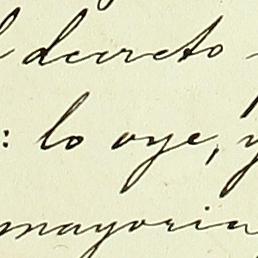 decreto
: lo oye, y
mayoria